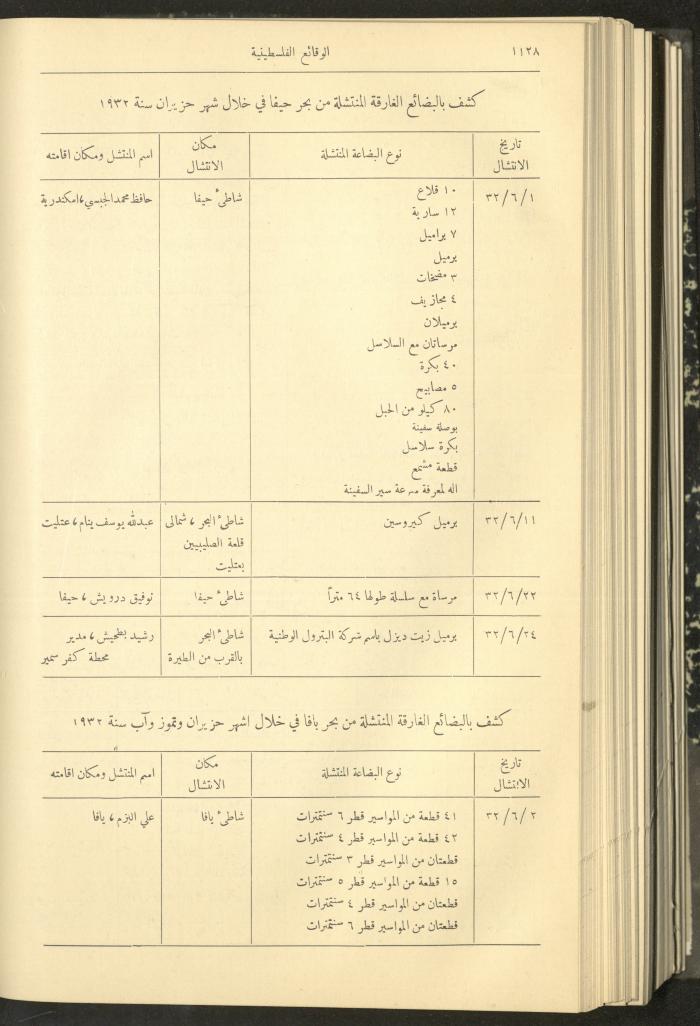 ١١٢٨ الوقائع الفلسطينية
كشف بالبضائع الغارقة المنتشلة من بحر حيفا في خلال شهر حزيران سنة ١٩٣٢
تاريخ الانتشال نوع البضاعة المنتشلة مكان الانتشال اسم المنتشل ومكان اقامته
٣٢/٦/١ ١٠ قلاع شاطئ حيفا حافظ محمد ، اسكندرية
١٢ سارية
٧ براميل
برميل
٣ مضخات
٤ مجازيف
برميلان
مرساتان مع السلاسل
٤٠ بكرة
٥ مصابيح
٨٠ كيلو من الحبل
بوصلة سفينة
بكرة سلاسل
قطعة مشمع
اله لمعرفة سرعة سير السفينة
٣٢/٦/١١ برميل كيروسين شاطئ البحر ، شمالى عبدالله يوسف ، عتليت
قلعة الصليبيين
بعتليت
٣٢/٦/٢٢ مرساة مع سلسلة طولها ٦٤ متراً شاطئ حيفا توفيق درويش ، حيفا
٣٢/٦/٢٤ برميل زيت ديزل باسم شركة البترول الوطنية شاطئ البحر رشيد بطحيش ، مدير
بالقرب من الطيرة محطة كفر سمير
كشف بالبضائع الغارقة المنتشلة من بحر يافا في خلال اشهر حزيران وتموز وآب سنة ١٩٣٢
تاريخ الانتشال نوع البضاعة المنتشلة مكان الانتشال اسم المنتشل ومكان اقامته
٣٢/٦/٢ ٤١ قطعة من المواسير قطر ٦ سنتمترات شاطئ يافا علي البزم ، يافا
٤٢ قطعة من المواسير قطر ٤ سنتمترات
قطعتان من المواسير قطر ٣ سنتمترات
١٥ قطعة من المواسير قطر ٥ سنتمترات
قطعتان من المواسير قطر ٤ سنتمترات
قطعتان من المواسير قطر ٦ سنتمترات